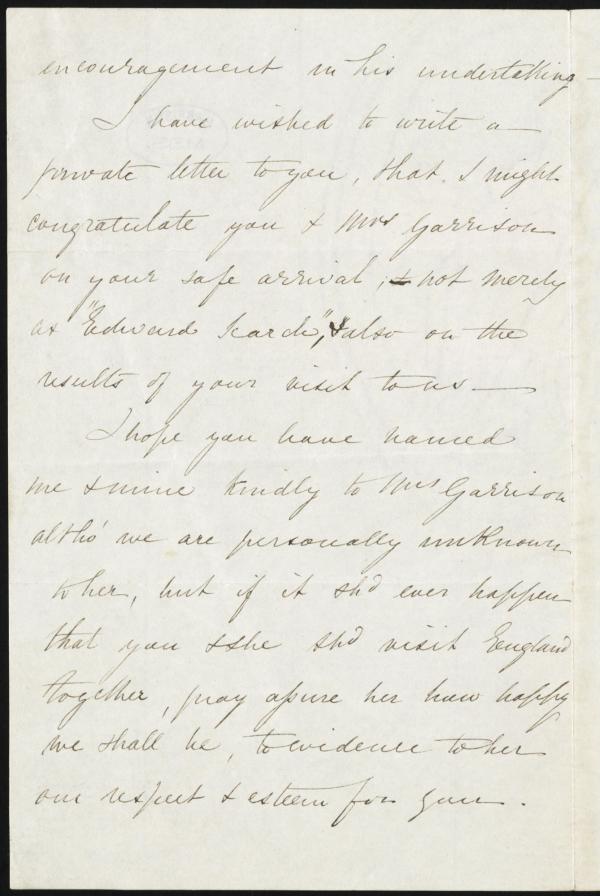 encouragement in his undertaking
I have wished to write a
private letter to you, that I might
congratulate you & Mrs Garrison
on your safe arrival, & not merely
as "Edward Search", & also on the
results of your visit to us —
I hope you have named
me & mine kindly to Mrs Garrison
altho' we are personally unknown
to her, but if it shd ever happen
that you & she shd visit England
together, pray assure her how happy
we shall be, to evidence to her
our respect & esteem for you.